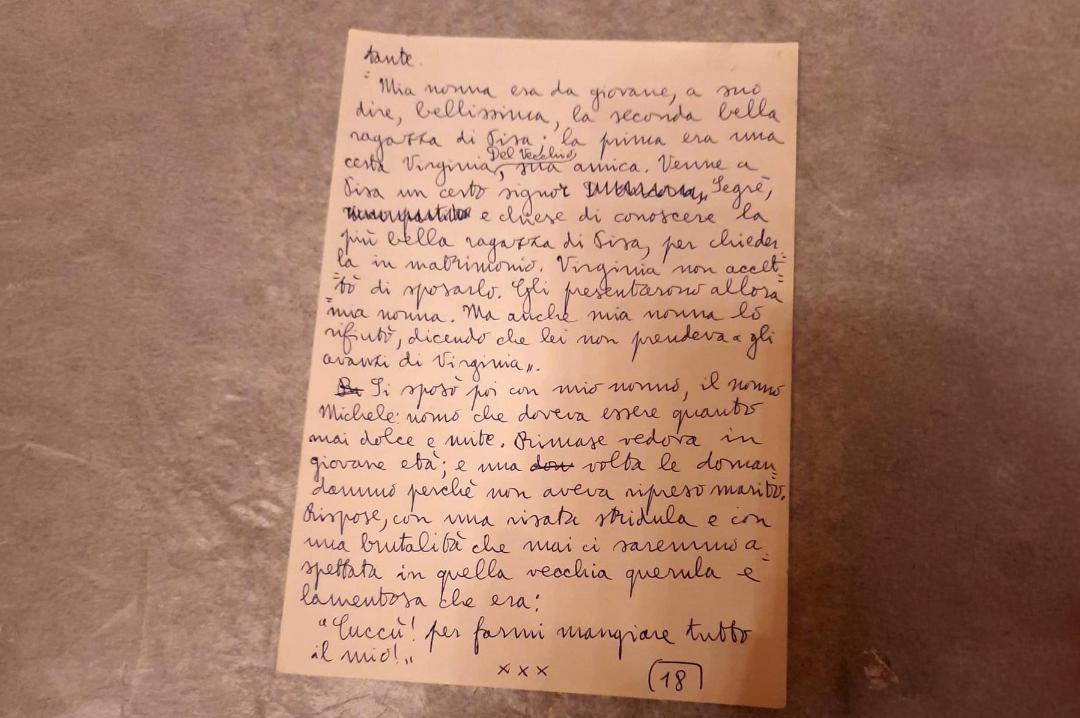 tante.
"Mia nonna era da giovane, a suo
dire, bellissima, la seconda bella
ragazza di Pisa; la prima era una
certa Virginia Del Vecchio, sua amica. Venne a
Pisa un certo signor Segrè,
e chiese di conoscere la
più bella ragazza di Pisa, per chieder
la in matrimonio. Virginia non accet=
=tò di sposarlo. Gli presentarono allora
"mia nonna. Ma anche mia nonna lo
rifiutò, dicendo che lei non prendeva « gli
avanzi di Virginia„.
Si sposò poi con mio nonno, il nonno
Michele: uomo che doveva essere quanto
mai dolce e mite. Rimase vedova in
giovane età; e una volta le doman=
dammo perché non aveva ripreso marito.
Rispose, con una risata stridula e con
una brutalità che mai ci saremmo a=
spettata in quella vecchia querula e
lamentosa che era:
"Cuccù! per farmi mangiare tutto
il mio!„
x x x
18